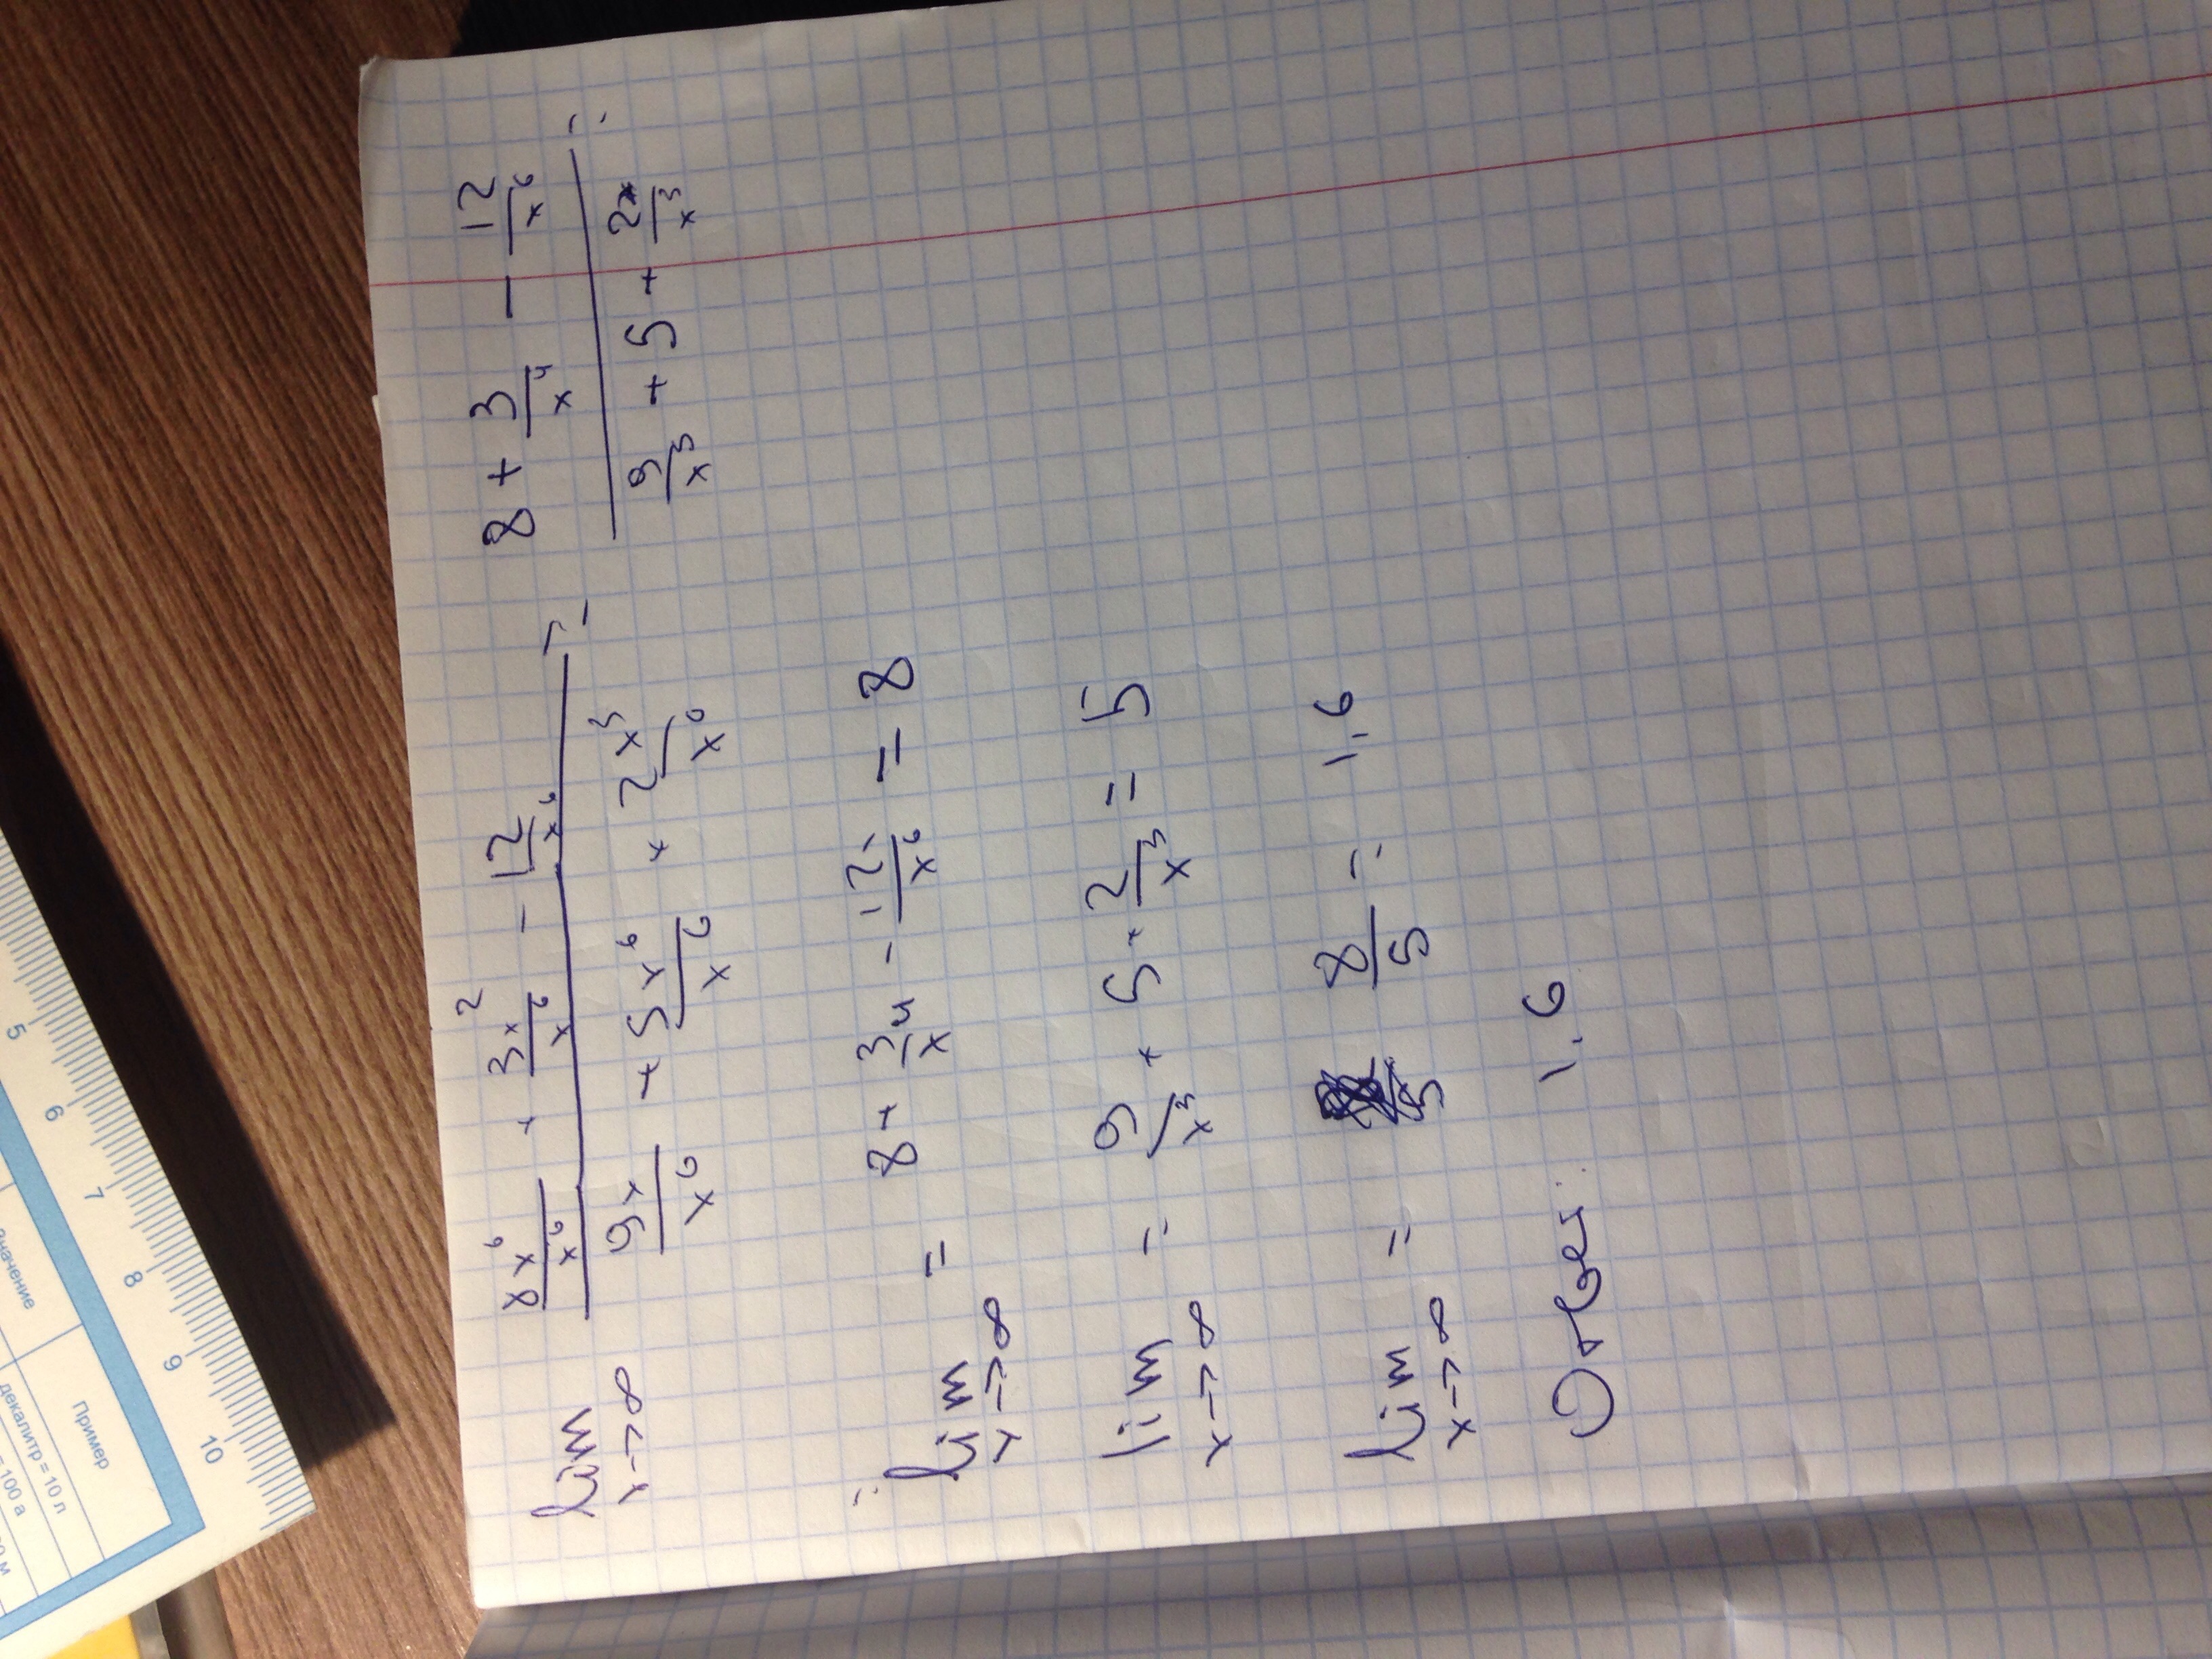 lim x→∞ (8x⁶/x⁶ + 3x²/x⁶ - 12/x⁶) / (9x/x⁶ + 5x⁶/x⁶ + 2x³/x⁶) = (8 + 3/x⁴ - 12/x⁶) / (9/x³ + 5 + 2/x³) =
= lim x→∞ = 8 + 3/x⁴ - 12/x⁶ = 8
lim x→∞ = 9/x³ + 5 + 2/x³ = 5
lim x→∞ = 8/5 = 1,6
Ответ: 1,6
5 6 7 8 9 10
значение
Пример
декалитр = 10 л
= 100 а